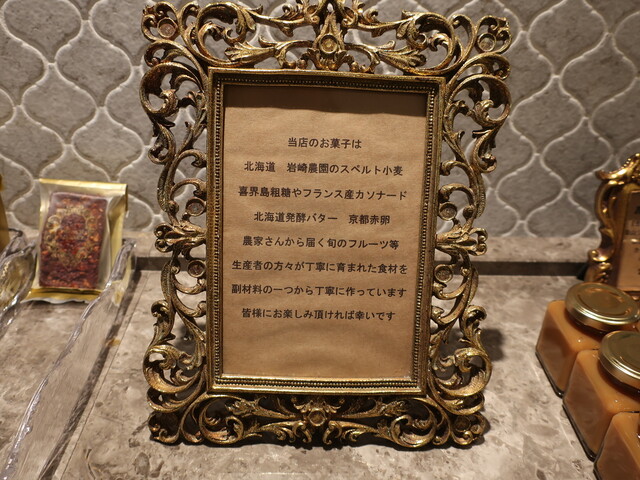 当店のお菓子は
北海道　岩崎農園のスペルト小麦
喜界島粗糖やフランス産カソナード
北海道発酵バター　京都赤卵
農家さんから届く旬のフルーツ等
生産者の方々が丁寧に育まれた食材を
副材料の一つから丁寧に作っています
皆様にお楽しみ頂ければ幸いです